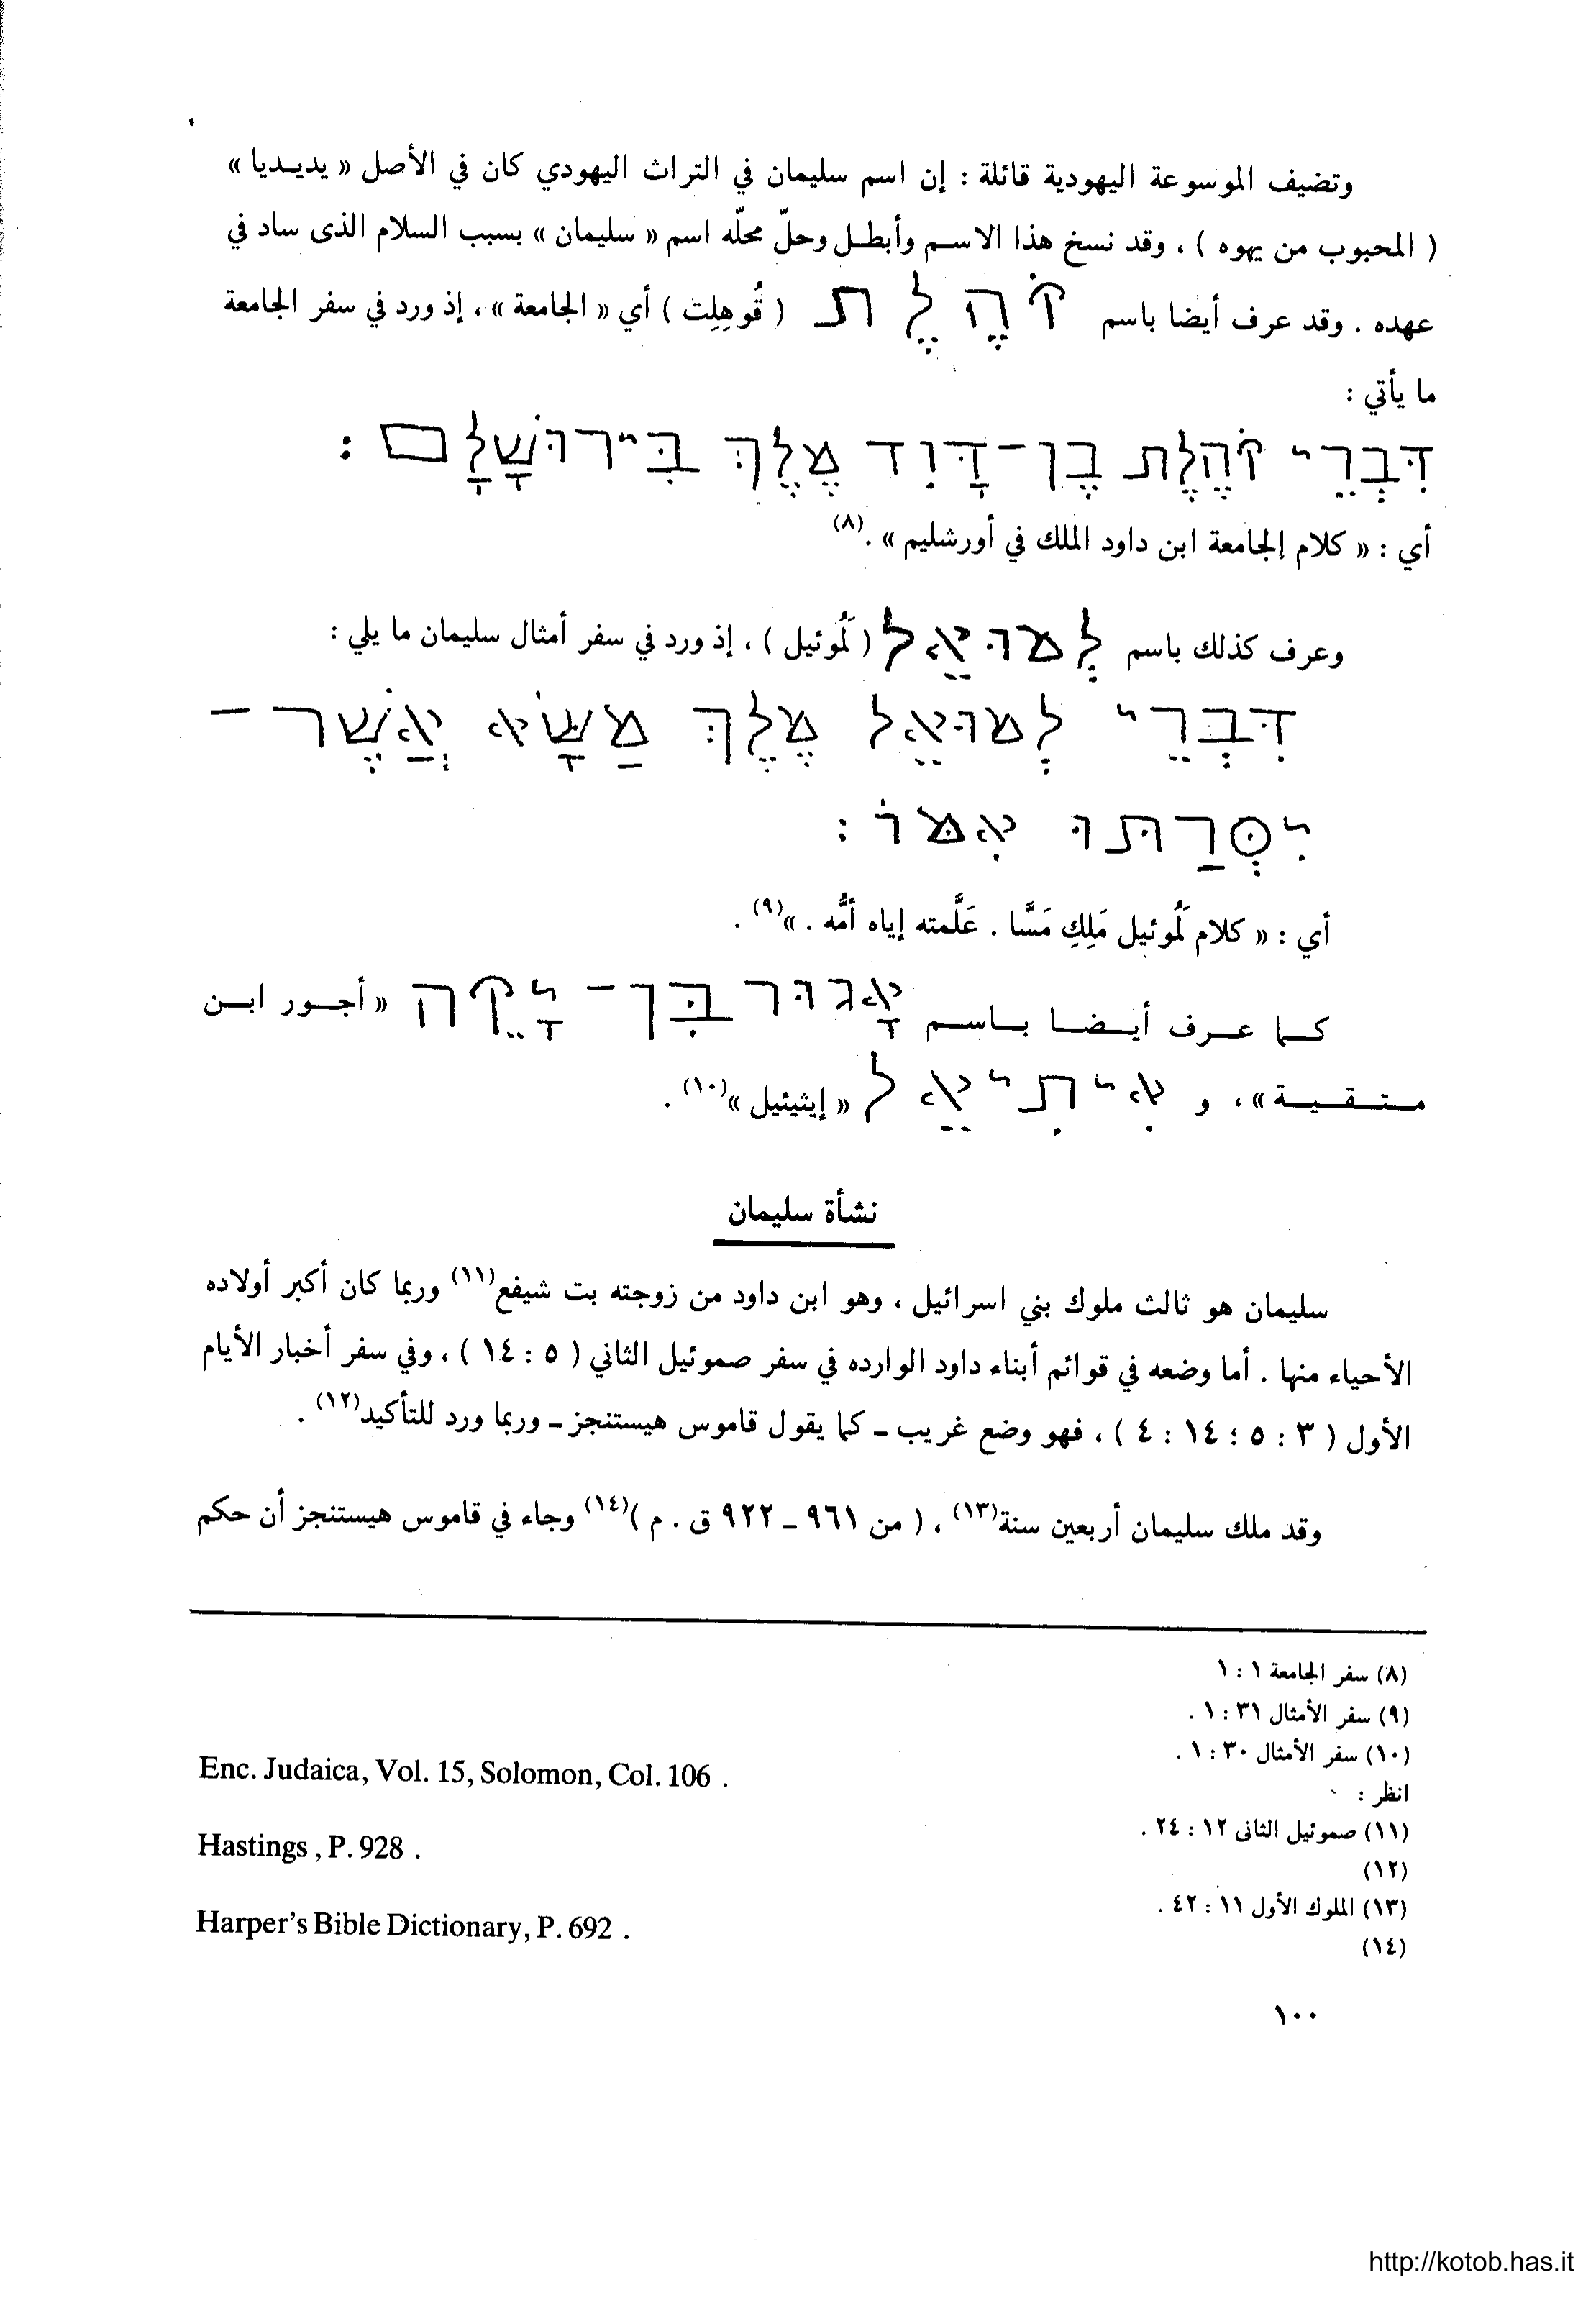 وتضيف الموسوعة اليهودية قائلة : إن اسم سليمان في التراث اليهودي كان في الأصل « يديديا »
( المحبوب من يهوه ) ، وقد نسخ هذا الاسم وأبطل وحلّ محلّه اسم « سليمان » بسبب السلام الذى ساد في
عهده . وقد عرف أيضا باسم קֹהֶלֶת ( قُوهِلِت ) أي « الجامعة » ، إذ ورد في سفر الجامعة
ما يأتي :
דִּבְרֵי קֹהֶלֶת בֶּן־דָּוִד מֶלֶךְ בִּירוּשָׁלָם :
أي : « كلام الجامعة ابن داود الملك في أورشليم » .(٨)
وعرف كذلك باسم לְמוּאֵל ( لَمُوئيل ) ، إذ ورد في سفر أمثال سليمان ما يلي :
דִּבְרֵי לְמוּאֵל מֶלֶךְ מַשָּׂא אֲשֶׁר־
יִסְּרַתּוּ אִמּוֹ :
أي : « كلام لَمُوئيل مَلِكِ مَسَّا . عَلَّمته إياه أمُّه . »(٩) .
كما عرف أيضا باسم אָגוּר בִּן־יָקֵה « أجور ابن
متقية » ، و אִיתִיאֵל « إيثيئيل »(١٠) .
نشأة سليمان
سليمان هو ثالث ملوك بني اسرائيل ، وهو ابن داود من زوجته بت شيفع(١١) وربما كان أكبر أولاده
الأحياء منها . أما وضعه في قوائم أبناء داود الوارده في سفر صموئيل الثاني ( ٥ : ١٤ ) ، وفي سفر أخبار الأيام
الأول ( ٣ : ٥ ؛ ١٤ : ٤ ) ، فهو وضع غريب ـ كما يقول قاموس هيستنجز ـ وربما ورد للتأكيد(١٢) .
وقد ملك سليمان أربعين سنة(١٣) ، ( من ٩٦١ ـ ٩٢٢ ق . م )(١٤) وجاء في قاموس هيستنجز أن حكم
(٨) سفر الجامعة ١ : ١
(٩) سفر الأمثال ٣١ : ١ .
(١٠) سفر الأمثال ٣٠ : ١ .
انظر : Enc. Judaica, Vol. 15, Solomon, Col. 106 .
(١١) صموئيل الثانى ١٢ : ٢٤ .
(١٢) Hastings , P. 928 .
(١٣) الملوك الأول ١١ : ٤٢ .
(١٤) Harper's Bible Dictionary, P. 692 .
١٠٠
http://kotob.has.it